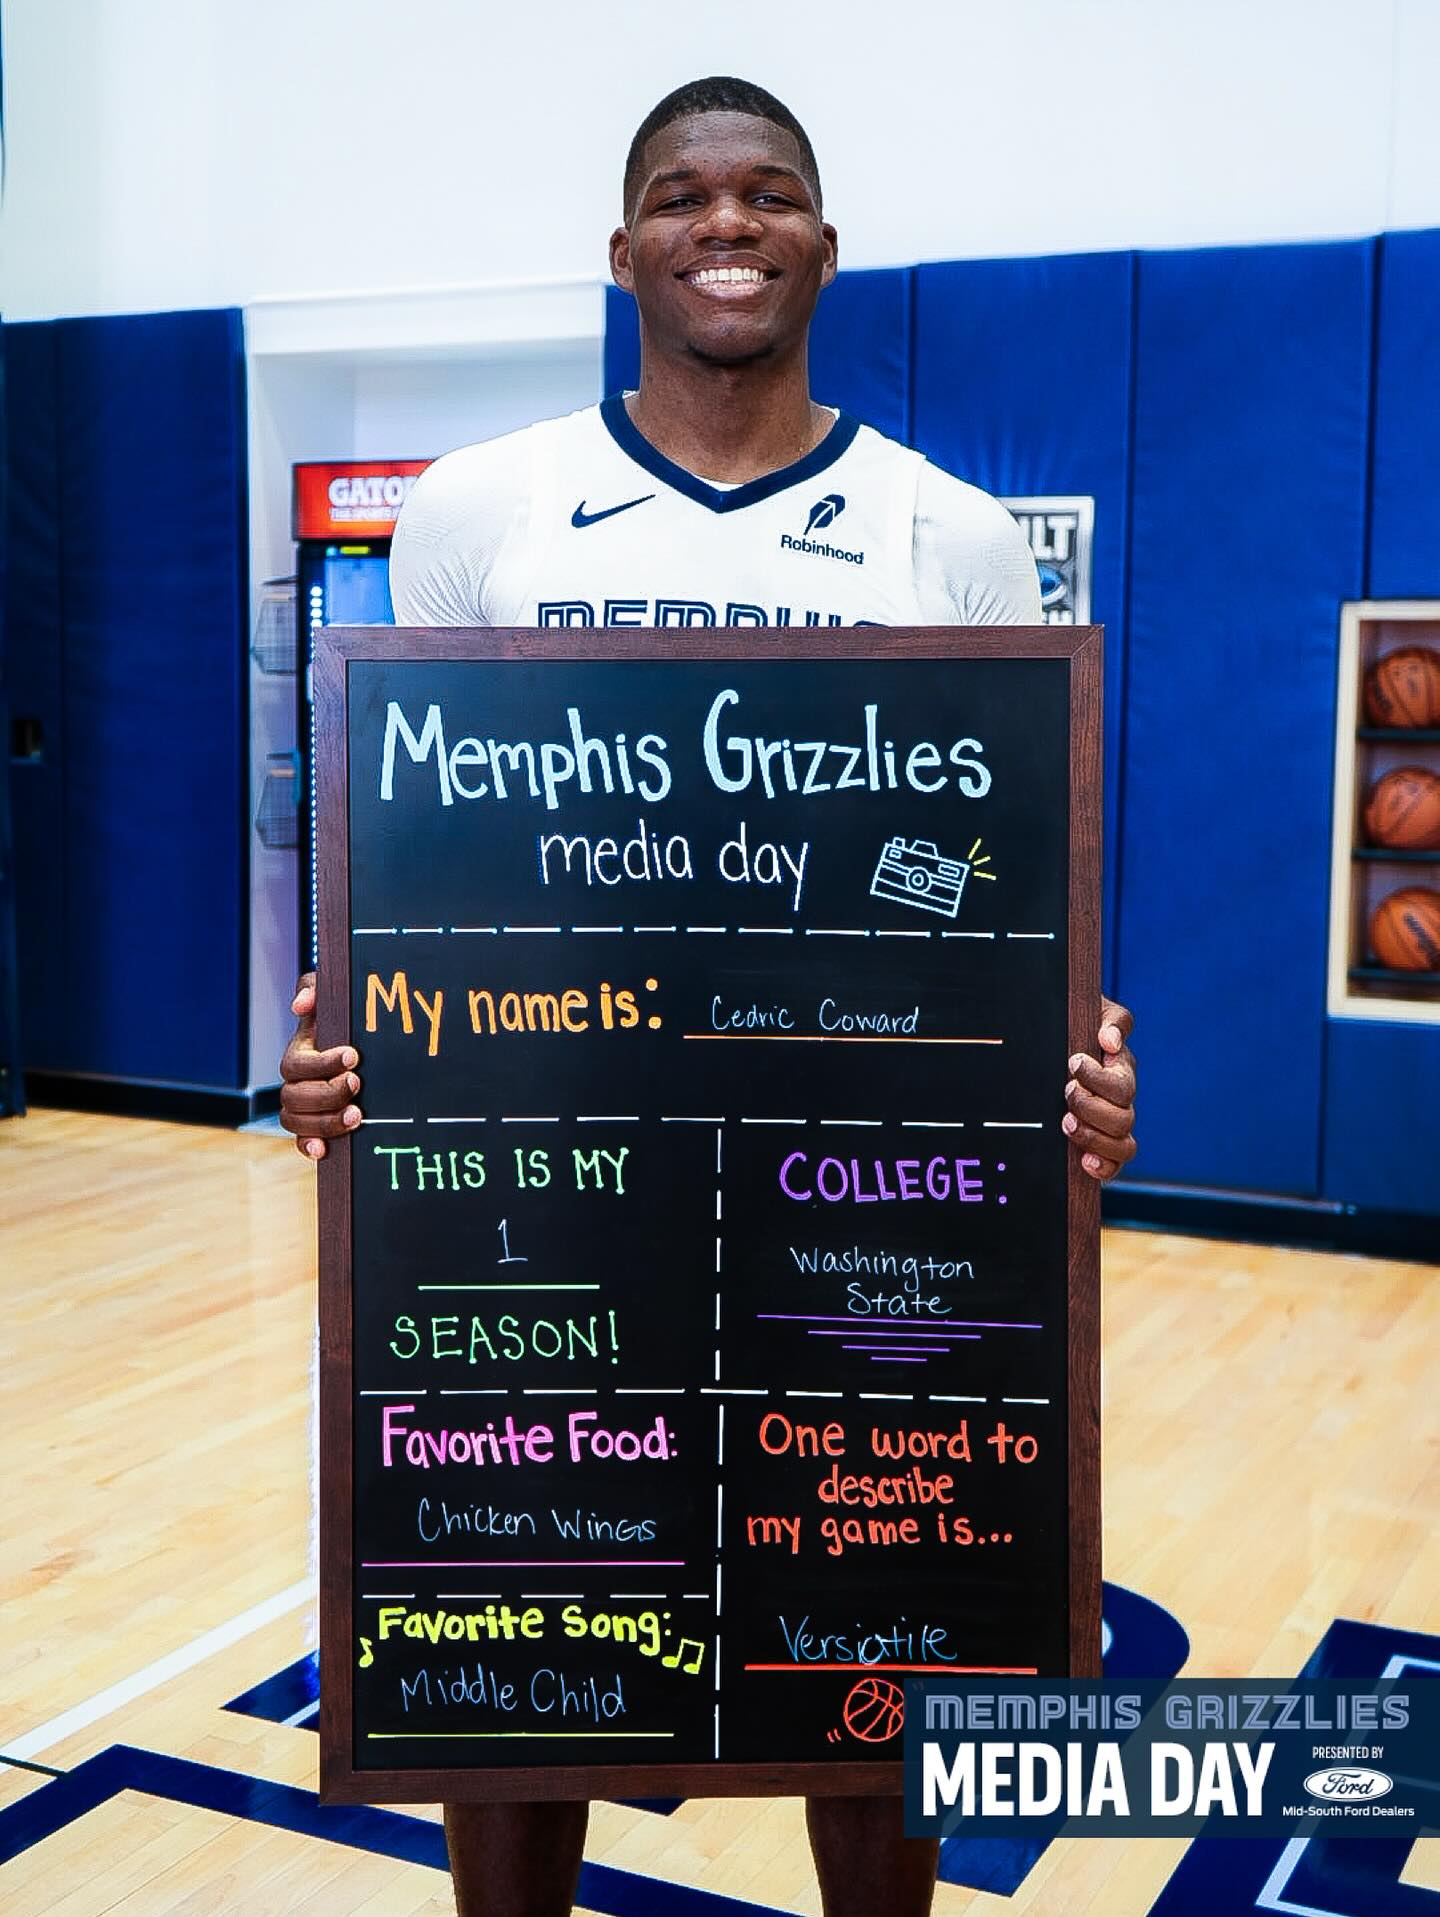 GATO
Robinhood
MEMPHIS
Memphis Grizzlies
media day
My name is: Cedric Coward
THIS IS MY
1
SEASON!
COLLEGE:
Washington
State
Favorite Food:
Chicken Wings
One word to
describe
my game is...
Versiatile
Favorite Song:
Middle Child
MEMPHIS GRIZZLIES
MEDIA DAY
PRESENTED BY
Ford
Mid-South Ford Dealers